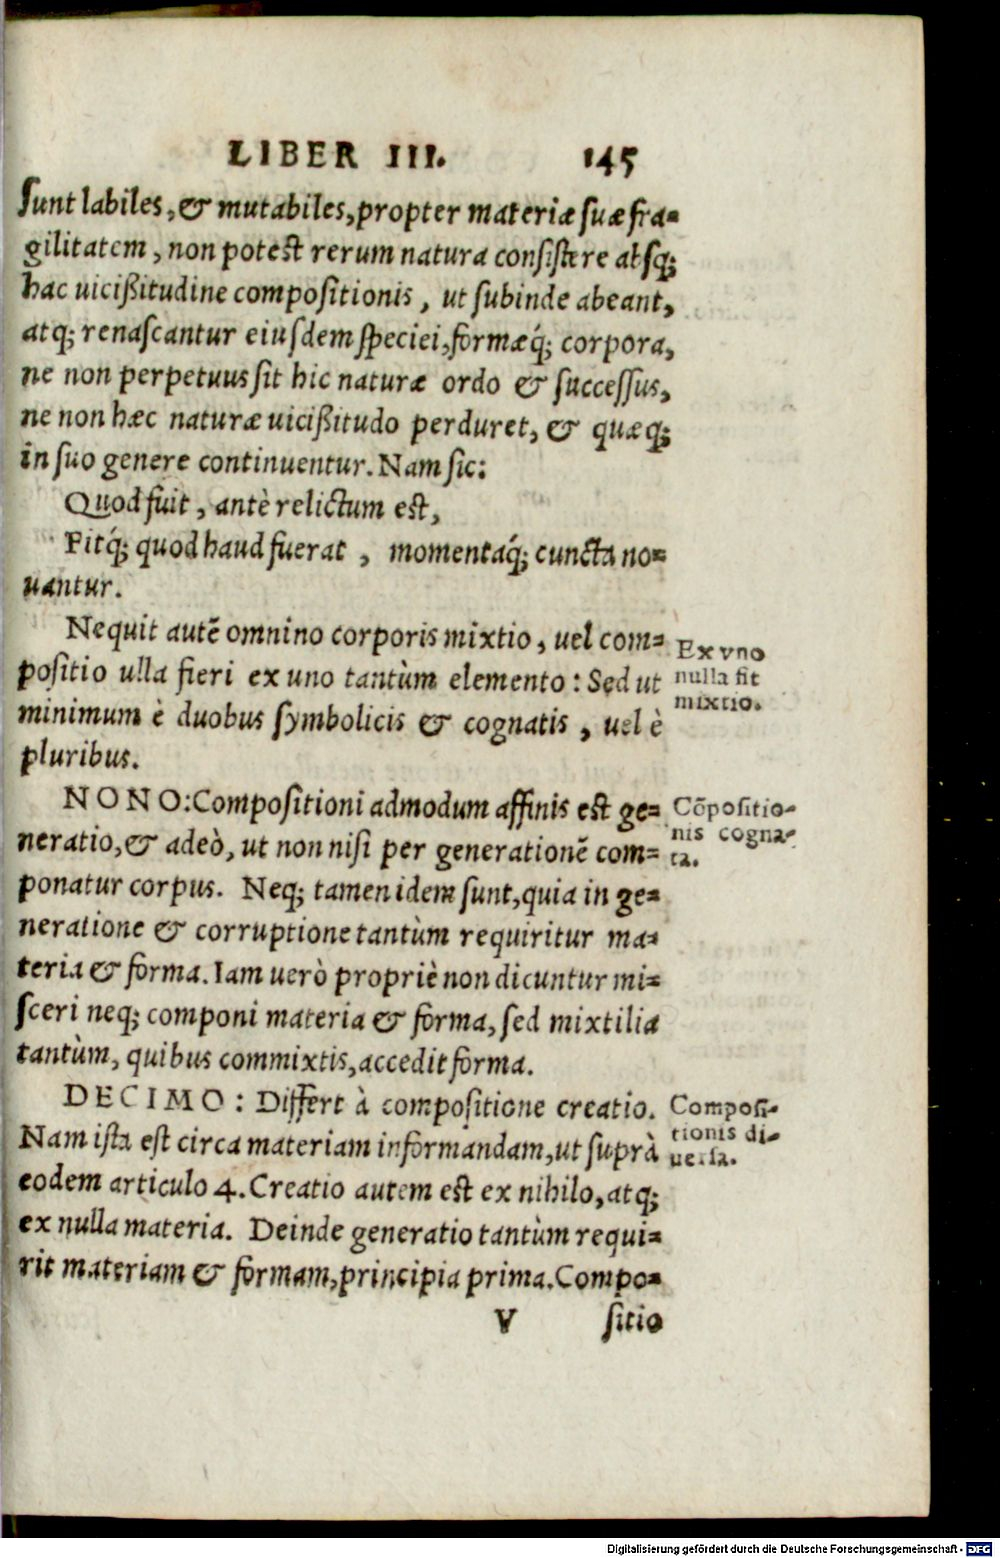 LIBER III. 145
sunt labiles, & mutabiles, propter materiæ suæ fra-
gilitatem, non potest rerum natura consistere absq;
hac uicißitudine compositionis, ut subinde abeant,
atq; renascantur eiusdem speciei, formæq́; corpora,
ne non perpetuus sit hic naturæ ordo & successus,
ne non hæc naturæ uicißitudo perduret, & quæq;
in suo genere continuentur. Nam sic:
Quod fuit, antè relictum est,
Fitq́; quod haud fuerat, momentaq́; cuncta no-
uantur.
Nequit autẽ omnino corporis mixtio, uel com-
positio ulla fieri ex uno tantùm elemento: Sed ut
minimum è duobus symbolicis & cognatis, uel è
pluribus.
Ex vno
nulla fit
mixtio.
NONO: Compositioni admodum affinis est ge-
neratio, & adeò, ut non nisi per generationẽ com-
ponatur corpus. Neq; tamen idem sunt, quia in ge-
neratione & corruptione tantùm requiritur ma-
teria & forma. Iam uerò propriè non dicuntur mi-
sceri neq; componi materia & forma, sed mixtilia
tantùm, quibus commixtis, accedit forma.
Cõpositio-
nis cogna-
ta.
DECIMO: Differt à compositione creatio.
Nam ista est circa materiam informandam, ut suprà
eodem articulo 4. Creatio autem est ex nihilo, atq;
ex nulla materia. Deinde generatio tantùm requi-
rit materiam & formam, principia prima. Compo-
Composi-
tionis di-
uersa.
V sitio
Digitalisierung gefördert durch die Deutsche Forschungsgemeinschaft - DFG